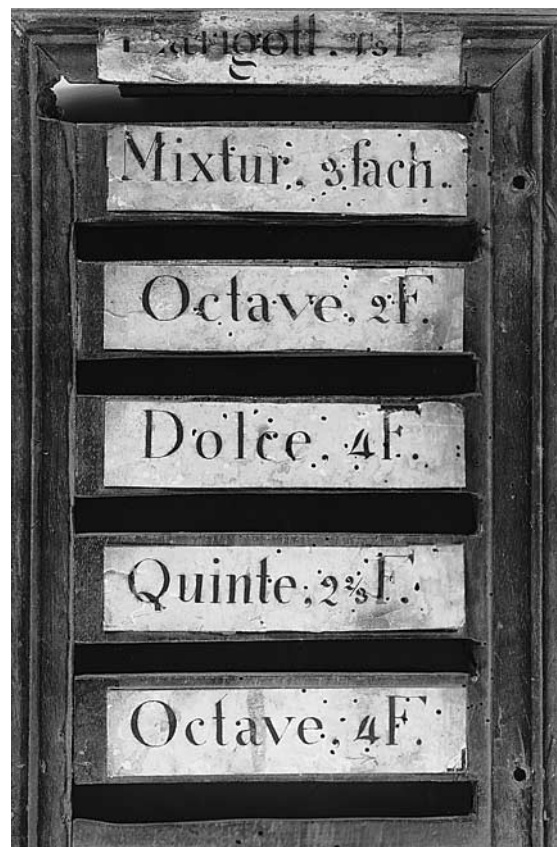 Larigott.
Mixtur. 3fach.
Octave. 2F.
Dolce. 4F.
Quinte. 2⅔F.
Octave. 4F.